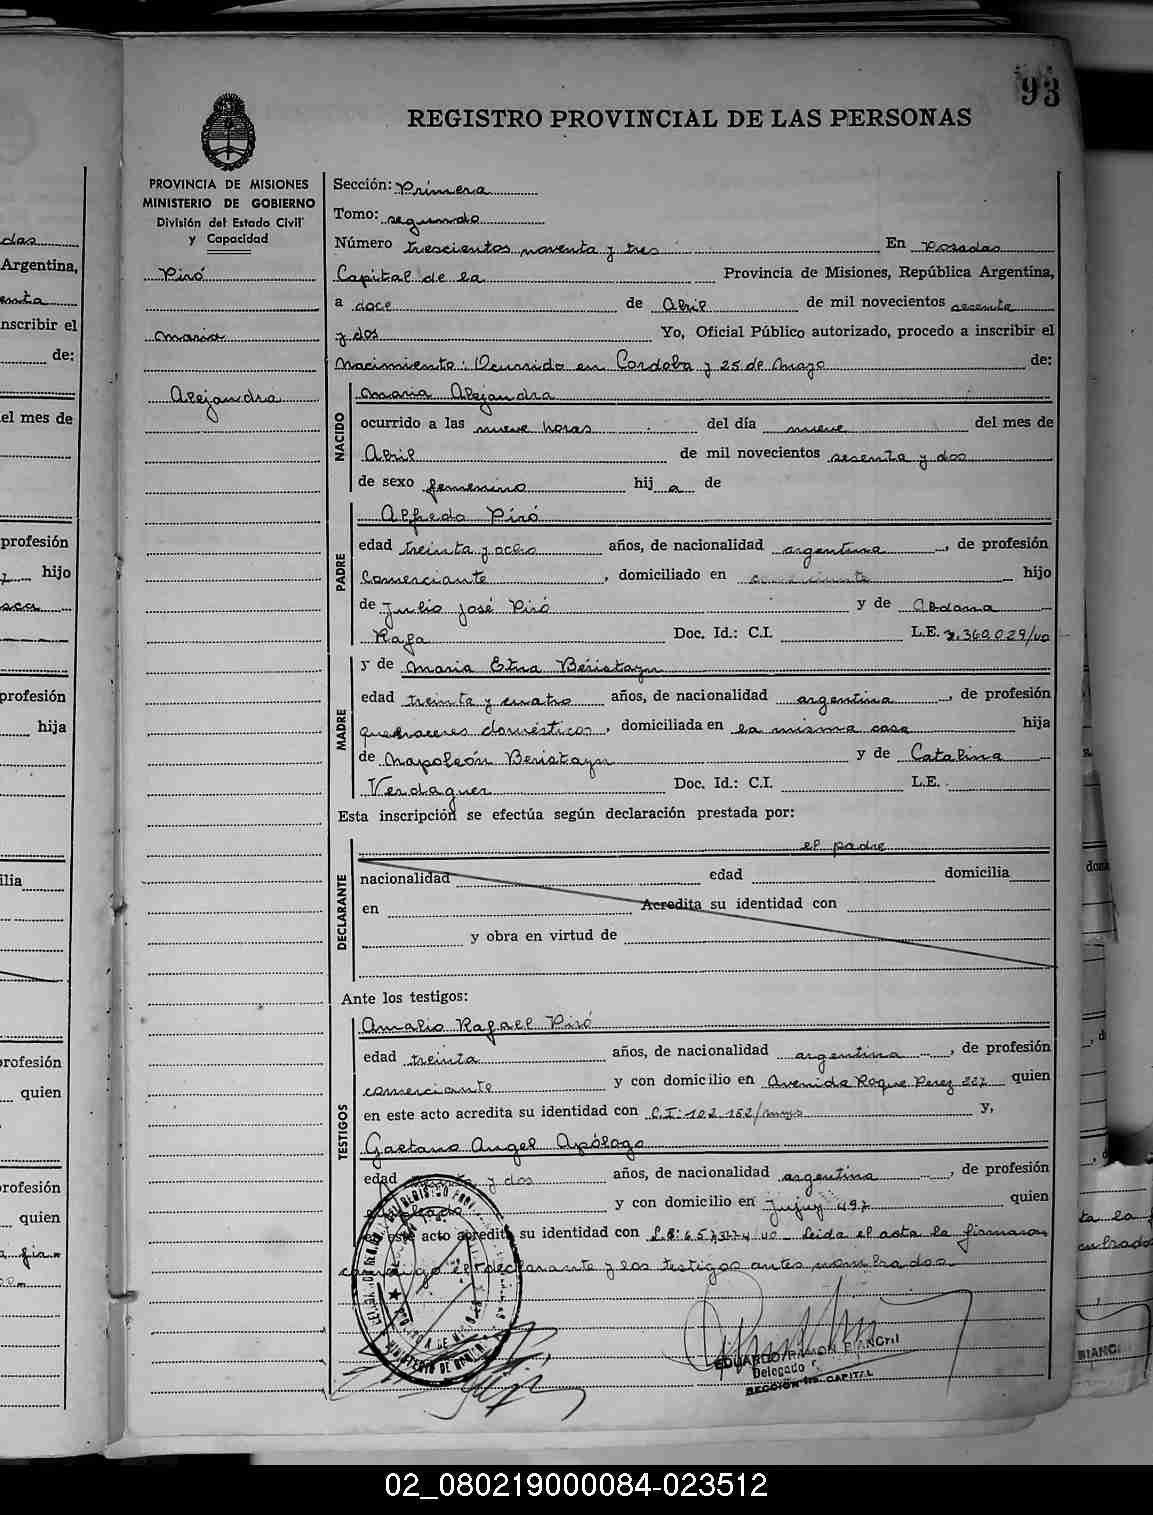 93
REGISTRO PROVINCIAL DE LAS PERSONAS
PROVINCIA DE MISIONES
MINISTERIO DE GOBIERNO
División del Estado Civil
y Capacidad
Piró
Maria
Alejandra
Sección: Primera
Tomo: segundo
Número trescientos noventa y tres En Posadas
Capital de la Provincia de Misiones, República Argentina,
a doce de Abril de mil novecientos sesenta
y dos Yo, Oficial Público autorizado, procedo a inscribir el
Nacimiento: Ocurrido en Cordoba y 25 de Mayo de:
NACIDO
Maria Alejandra
ocurrido a las nueve horas del día nueve del mes de
Abril de mil novecientos sesenta y dos
de sexo femenino hij a de
PADRE
Alfredo Piró
edad treinta y ocho años, de nacionalidad argentina, de profesión
Comerciante, domiciliado en hijo
de Julio José Piró y de Abdona
Rafa Doc. Id.: C.I. L.E. 7.360.029/
MADRE
y de Maria Etna Béristayn
edad treinta y cuatro años, de nacionalidad argentina, de profesión
quehaceres domésticos, domiciliada en la misma casa hija
de Napoleón Beristayn y de Catalina
Verdaguer Doc. Id.: C.I. L.E.
Esta inscripción se efectúa según declaración prestada por:
DECLARANTE
el padre
nacionalidad edad domicilia
en Acredita su identidad con
y obra en virtud de
Ante los testigos:
TESTIGOS
Amalio Rafael Piró
edad treinta años, de nacionalidad argentina, de profesión
comerciante y con domicilio en Avenida Roque Perez 227 quien
en este acto acredita su identidad con C.I: 102.152/mnes y,
Gaetano Angel Apólogo
edad y dos años, de nacionalidad argentina, de profesión
empleado y con domicilio en Jujuy 497 quien
en este acto acredita su identidad con leida el acta la firmaron
conmigo el declarante y los testigos antes nombrados.
EDUARDO RAMON BIANCHI
Delegado
SECCIÓN 1ra. CAPITAL
02_080219000084-023512